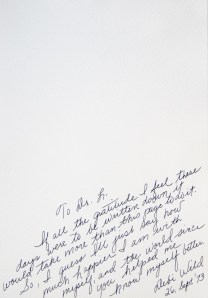 To Dr. L.
If all the gratitude I feel these
days were to be written down it
would take more than this page to do it.
So, I guess I'll just say how
much happier I am with
myself, and the world since
you helped me
know myself better
Wild
Sept '73